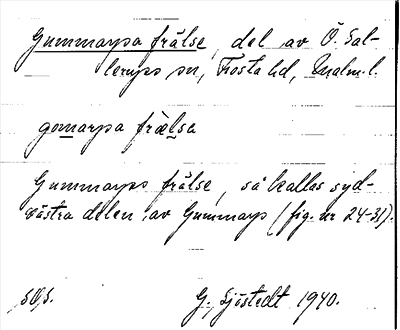 Gummarpa frälse, del av Ö. Sal-
lerups sn, Frosta hd, Malm. l.
gomarpa frælsa
Gummarps frälse, så kallas syd-
västra delen av Gummarp (fig. nr 24-31).
G. Sjöstedt 1940.